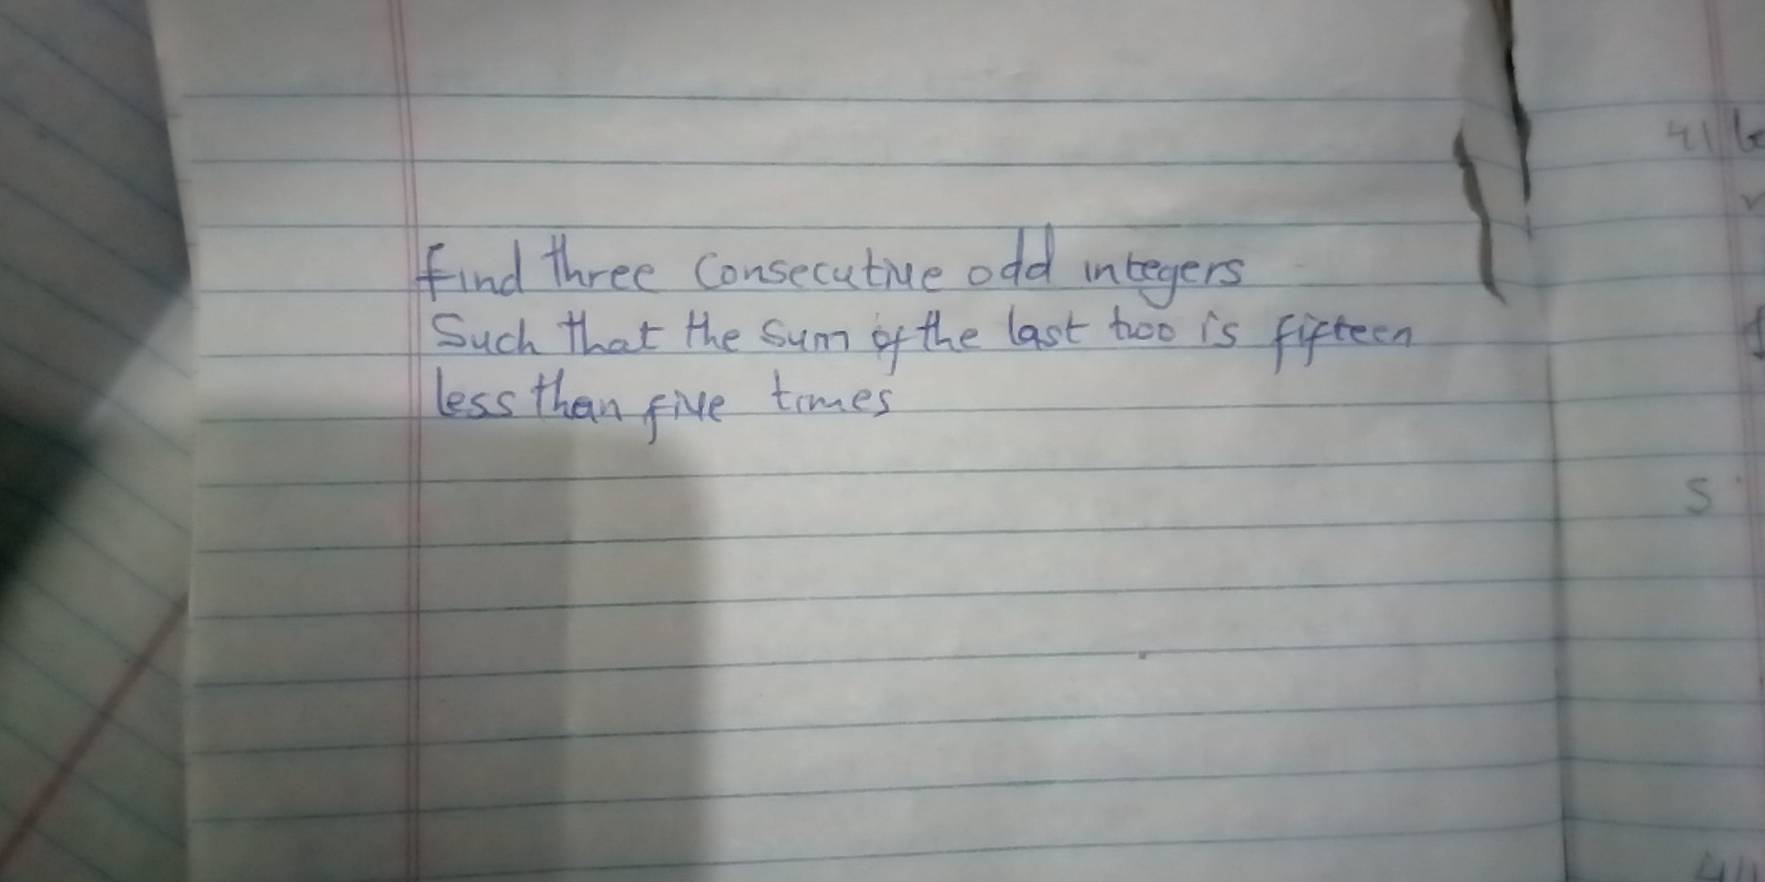 find three consecutive odd integers
Such that the sum of the last two is fifteen
less than five times
41
S